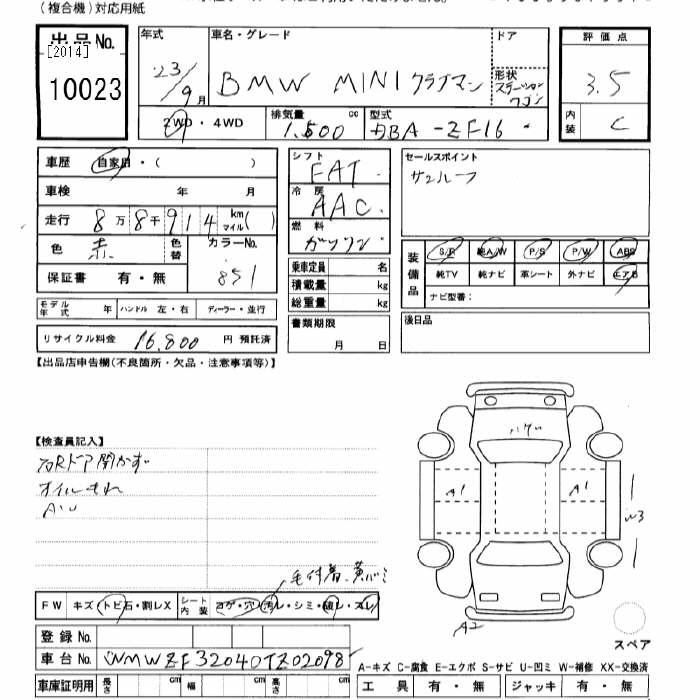 (複合機)対応用紙
出品No.
[2014]
10023
年式
23/9月
車名・グレード
BMW MINIクラブマン
ドア
形状
ステーションワゴン
評価点
3.5
内装
C
2WD・4WD
排気量
1.600 cc
型式
DBA-ZF16
車歴 自家用・( )
車検 年 月
走行 8万8千914 km マイル( )
色 赤 色替
カラーNo.
851
保証書 有・無
モデル年式 年 ハンドル 左・右 ディーラー・並行
リサイクル料金 16,800 円 預託済
シフト
FAT
冷房
AAC
燃料
ガソリン
乗車定員 名
積載量 kg
総重量 kg
書類期限
月 日
セールスポイント
サンルーフ
装備品
S/R 純A/W P/S P/W ABS
純TV 純ナビ 革シート 外ナビ エアB
ナビ型番:
後日品
【出品店申告欄(不良箇所・欠品・注意事項等)】
【検査員記入】
右Rドア開かず
オイルもれ
AU
ハゲ
A1
A1
W3
A2
毛付着、黄バミ
FW キズ・トビ石・割レX
シート内装 コゲ・穴・汚レ・シミ・破レ・スレ
登録No.
車台No. WMWZF32040TZ02098
車庫証明用 長さ cm 幅 cm 高さ cm
スペア
A-キズ C-腐食 E-エクボ S-サビ U-凹ミ W-補修 XX-交換済
工具 有・無 ジャッキ 有・無